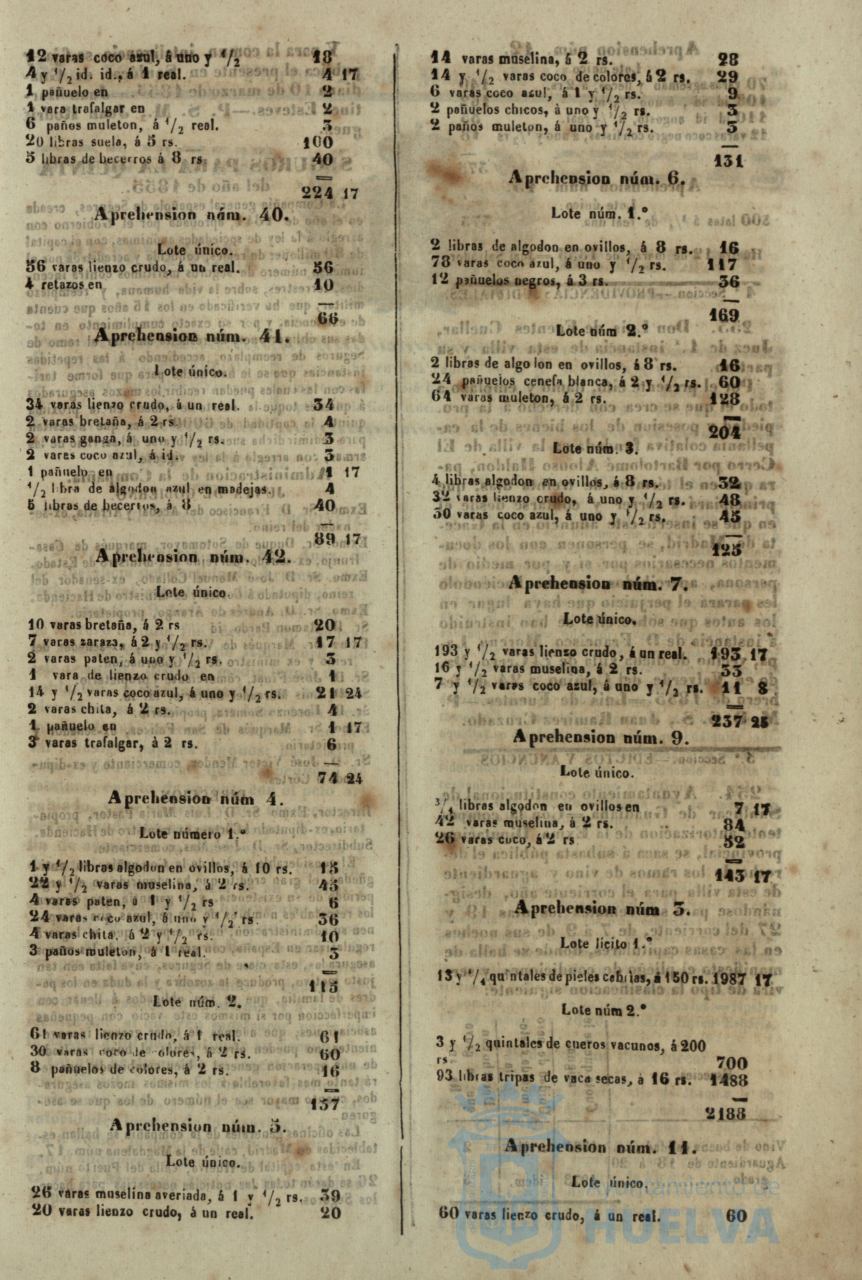 12 varas coco azul, á uno y 1/2 18
4 y 1/2 id. id., á 1 real. 4 17
1 pañuelo en 2
1 vara trafalgar en 2
6 paños muleton, á 1/2 real. 3
20 libras suela, á 5 rs. 100
5 libras de becerros á 8 rs 40
224 17
Aprehension núm. 40.
Lote único.
56 varas lienzo crudo, á un real. 56
4 retazos en 10
66
Aprehension núm. 41.
Lote único.
34 varas lienzo crudo, á un real. 34
2 varas bretaña, á 2 rs 4
2 varas ganga, á uno y 1/2 rs. 3
2 varas coco azul, á id. 3
1 pañuelo en 1 17
1/2 libra de algodon azul en madejas. 4
5 libras de becerros, á 8 40
89 17
Aprehension núm. 42.
Lote único.
10 varas bretaña, á 2 rs 20
7 varas zaraza, á 2 y 1/2 rs. 17 17
2 varas paten, á uno y 1/2 rs. 3
1 vara de lienzo crudo en 1
14 y 1/2 varas coco azul, á uno y 1/2 rs. 21 24
2 varas chita, á 2 rs. 4
1 pañuelo en 1 17
3 varas trafalgar, á 2 rs. 6
74 24
Aprehension núm 4.
Lote número 1.º
1 y 1/2 libras algodon en ovillos, á 10 rs. 15
22 y 1/2 varas muselina, á 2 rs. 45
4 varas paten, á 1 y 1/2 rs 6
24 varas coco azul, á uno y 1/2 rs. 36
4 varas chita, á 2 y 1/2 rs. 10
3 paños muleton, á 1 real. 3
115
Lote núm. 2.
61 varas lienzo crudo, á 1 real. 61
30 varas coco de colores, á 2 rs. 60
8 pañuelos de colores, á 2 rs. 16
137
Aprehension núm. 5.
Lote único.
26 varas muselina averiada, á 1 y 1/2 rs. 39
20 varas lienzo crudo, á un real. 20
14 varas muselina, á 2 rs. 28
14 y 1/2 varas coco de colores, á 2 rs. 29
6 varas coco azul, á 1 y 1/2 rs. 9
2 pañuelos chicos, á uno y 1/2 rs. 3
2 paños muleton, á uno y 1/2 rs. 3
131
Aprehension núm. 6.
Lote núm. 1.º
2 libras de algodon en ovillos, á 8 rs. 16
78 varas coco azul, á uno y 1/2 rs. 117
12 pañuelos negros, á 3 rs. 36
169
Lote núm 2.º
2 libras de algodon en ovillos, á 8 rs. 16
24 pañuelos cenefa blanca, á 2 y 1/2 rs. 60
64 varas muleton, á 2 rs. 128
204
Lote núm. 3.
4 libras algodon en ovillos, á 8 rs. 32
32 varas lienzo crudo, á uno y 1/2 rs. 48
30 varas coco azul, á uno y 1/2 rs. 45
125
Aprehension núm. 7.
Lote único.
193 y 1/2 varas lienzo crudo, á un real. 193 17
16 y 1/2 varas muselina, á 2 rs. 33
7 y 1/2 varas coco azul, á uno y 1/2 rs. 11 8
237 25
Aprehension núm. 9.
Lote único.
3/4 libras algodon en ovillos en 7 17
42 varas muselina, á 2 rs. 84
26 varas coco, á 2 rs 52
143 17
Aprehension núm 3.
Lote lícito 1.º
13 y 1/4 quintales de pieles cabrías, á 150 rs. 1987 17
Lote núm 2.º
3 y 1/2 quintales de cueros vacunos, á 200
rs 700
93 libras tripas de vaca secas, á 16 rs. 1488
2188
Aprehension núm. 11.
Lote único.
60 varas lienzo crudo, á un real. 60
Ayuntamiento de
HUELVA